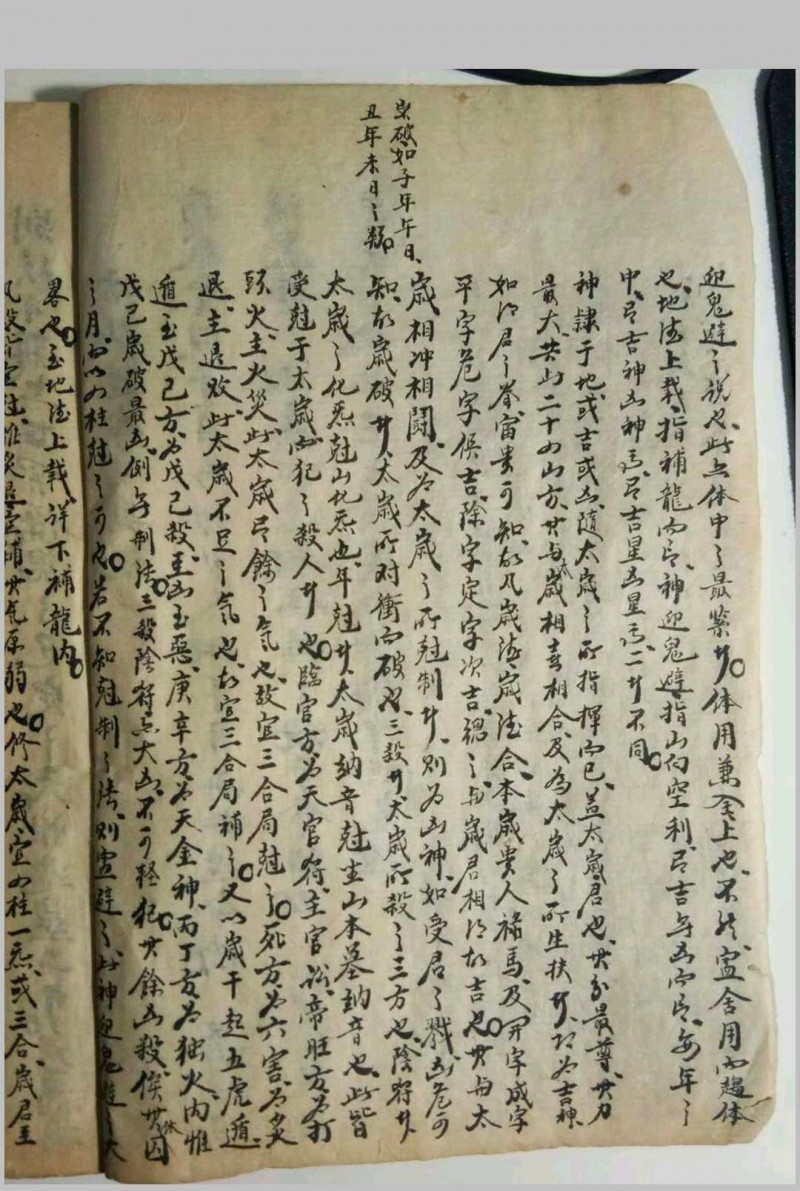 歲破如子年午日、
丑年未日之類
迎鬼避之說也、此五体中之最繁者、体用兼全上也、不然寧舍用而趨体
也、地德上載、指補龍而言、神迎鬼避、指山向空利、言吉与凶而言、每年之
中、言吉神凶神、言吉星凶星、二者不同
神隷于地或吉或凶随太歲之所指揮而已、蓋太歲君也、其分最尊、其力
最大、其山二十四山方、其与太歲相喜相合、及為太歲之所生扶者、為吉神
如得君之眷、富貴可知、故凡歲德歲德合本歲貴人祿馬及開字成字
平字危字俱吉、除字定字次吉、總之与歲君相得故吉也、其与太
歲相冲相鬪、及為太歲之所尅制者、則為凶神、如受君之戮、凶危可
知、故歲破者、太歲所对衝而破也、三殺者、太歲所殺之三方也、陰符者
太歲之化炁尅山化炁也、年尅者、太歲納音尅坐山本墓納音也、此皆
受尅于太歲、而犯之殺人者也、臨官方為天官符、主官訟、帝旺方為打
頭火、主火災、此太歲有餘之気也、故宜三合局尅之、死方為六害、為炙
退、主退敗、此太歲不足之気也、故宜三合局補之、又以歲干起五虎遁
遁至戊己方為戊己殺、至凶至惡、庚辛方為天金神、丙丁方為独火、内惟
戊己歲破最凶、倒与制法、三殺陰符亦大凶、不可輕犯、其餘凶殺、俟其休囚
之月、而以四柱尅之可也、若不知尅制之法、則宜避之、此神迎鬼避之大
畧也、至地德上載、詳下補龍内
宜尅、惟炙退宜補、其気原弱也、修太歲宜四柱一炁或三合、歲君主